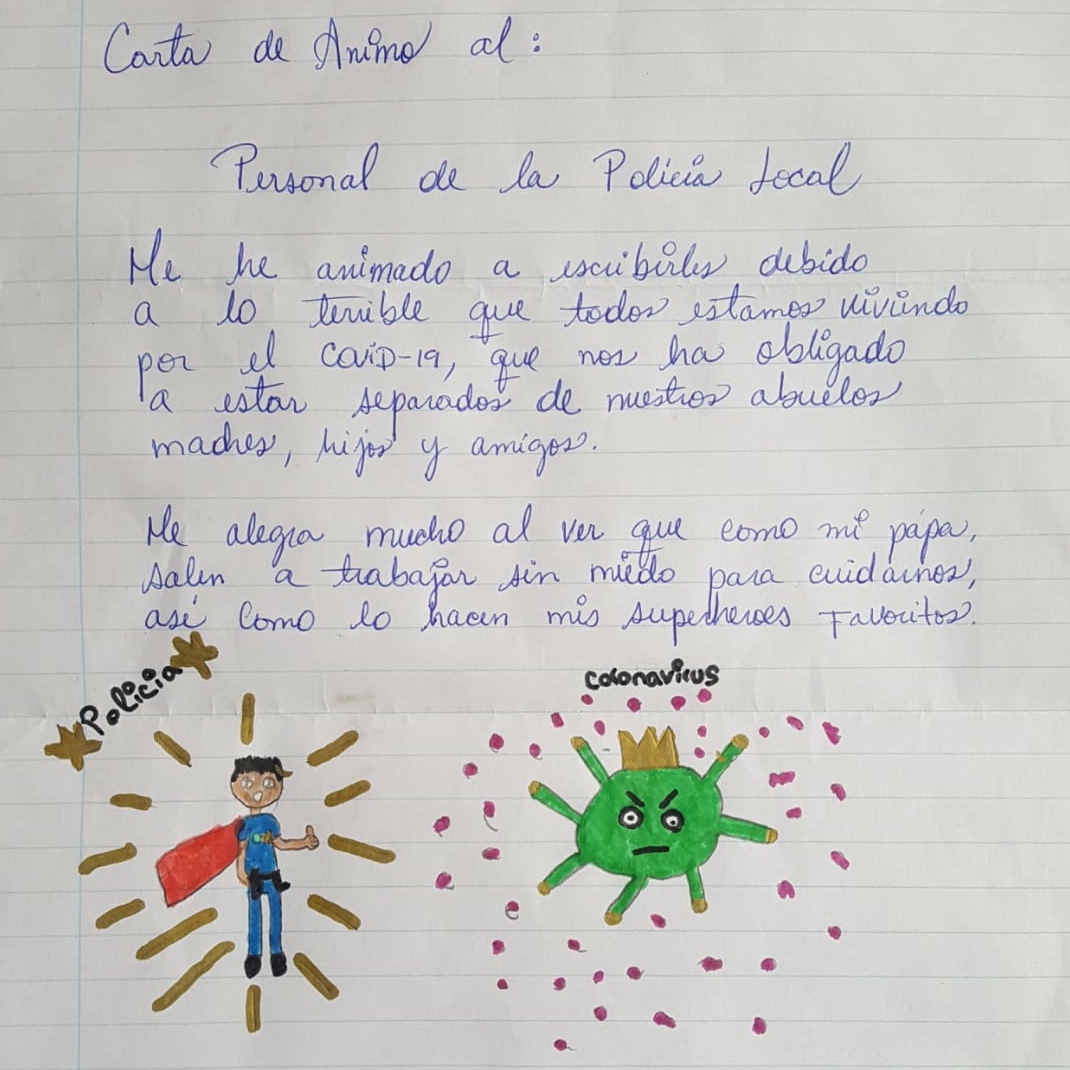 Carta de Animo al:
Personal de la Policía Local
Me he animado a escribirles debido
a lo terrible que todos estamos viviendo
por el COVID-19, que nos ha obligado
a estar separados de nuestros abuelos
madres, hijos y amigos.
Me alegra mucho al ver que como mi pápa,
salen a trabajar sin miedo para cuidarnos,
así como lo hacen mis superheroes Favoritos.
Policia
coronavirus